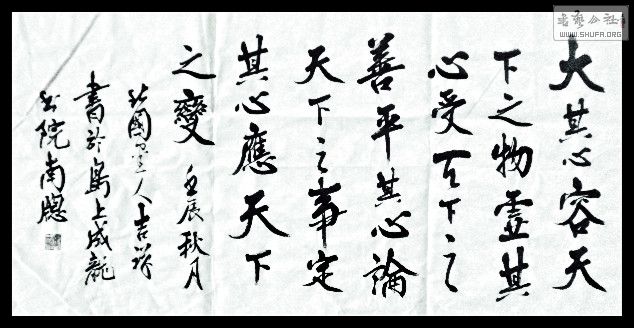 大其心容天
下之物虛其
心受天下之
善平其心論
天下之事定
其心應天下
之變 壬辰秋月
國人吉祥
書於島上成龍
书院南窗
書藝公社
WWW.SHUFA.ORG